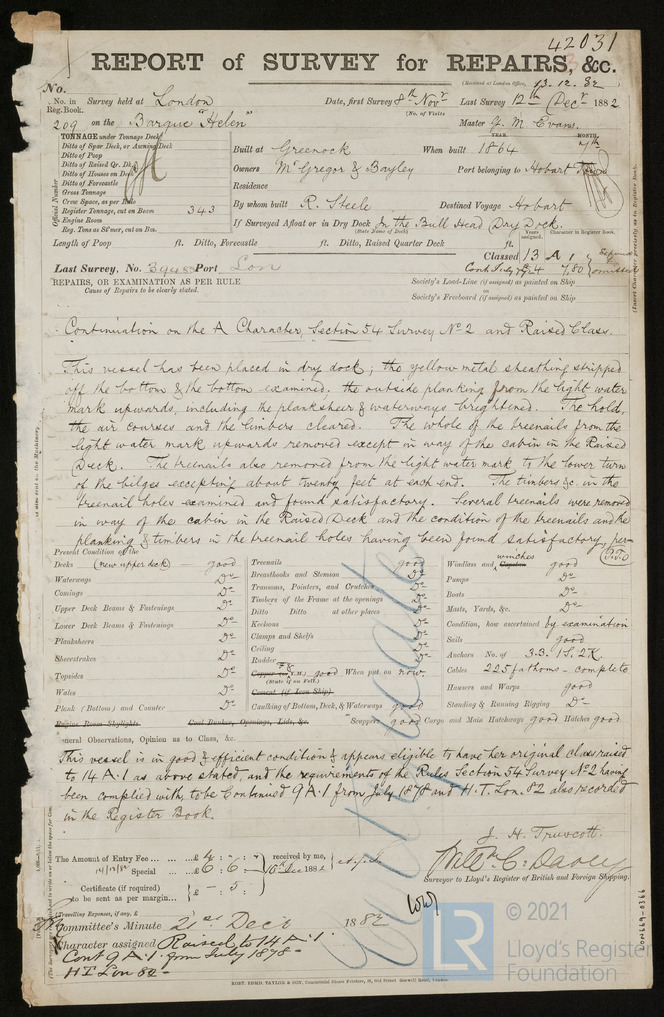 42031
REPORT of SURVEY for REPAIRS, &c.
(Received at London Office, 13.12.82
No.
No. in Reg. Book. Survey held at London Date, first Survey 8th Novr Last Survey 12th Decr 1882
(No. of Visits)
209 on the Barque "Helen" Master J. M. Evans.
TONNAGE under Tonnage Deck
Ditto of Spar Deck, or Awning Deck
Ditto of Poop
Ditto of Raised Qr. Dk.
Ditto of Houses on Deck
Ditto of Forecastle
Gross Tonnage
Crew Space, as per Rule
Register Tonnage, cut on Beam 343
Engine Room
Reg. Tons as St'mer, cut on Bm.
Official Number
YEAR. MONTH.
Built at Greenock When built 1864 7th
Owners McGregor & Bayley Port belonging to Hobart Town
Residence
By whom built R. Steele Destined Voyage Hobart
If Surveyed Afloat or in Dry Dock In the Bull Head Dry Dock.
(State Name of Dock) Years assigned. Character in Register Book.
Length of Poop ft. Ditto, Forecastle ft. Ditto, Raised Quarter Deck ft.
Classed 13 A 1
Last Survey, No. 3948 Port Lon
Cont July 77-4 7,80
omitted
REPAIRS, OR EXAMINATION AS PER RULE
Cause of Repairs to be clearly stated.
Society's Load-Line (if assigned) as painted on Ship
on
Society's Freeboard (if assigned) as painted on Ship
Continuation on the A Character, Section 54 Survey No 2 and Raised Class.
This vessel has been placed in dry dock; the yellow metal sheathing stripped
off the bottom & the bottom examined, the outside planking from the light water
mark upwards, including the planksheer & waterways brightened. The hold,
the air courses and the limbers cleared. The whole of the treenails from the
light water mark upwards removed except in way of the cabin in the Raised
Deck. The treenails also removed from the light water mark to the lower turn
of the bilges excepting about twenty feet at each end. The timbers &c. in the
treenail holes examined and found satisfactory. Several treenails were removed
in way of the cabin in the Raised Deck and the condition of the treenails and the
planking & timbers in the treenail holes having been found satisfactory, per-
P.T.O
Present Condition of the
Decks (new upper deck) good
Waterways Do
Comings Do
Upper Deck Beams & Fastenings Do
Lower Deck Beams & Fastenings Do
Planksheers Do
Sheerstrakes Do
Topsides Do
Wales Do
Plank (Bottom) and Counter Do
Engine Room Skylights Coal Bunker, Openings, Lids, &c.
Treenails good
Breasthooks and Stemson Do
Transoms, Pointers, and Crutches Do
Timbers of the Frame at the openings Do
Ditto Ditto at other places Do
Keelsons Do
Clamps and Shelfs Do
Ceiling Do
Rudder Do
Copper (or Y.M.) good When put on now.
(State if on Felt.)
Cement (if Iron Ship)
Caulking of Bottom, Deck, & Waterways good
Scuppers good Cargo and Main Hatchways good Hatches good
Windlass and Capstan winches good
Pumps Do
Boats Do
Masts, Yards, &c. Do
Condition, how ascertained by examination
Sails good
Anchors No. of 3.B. 1 S. 2 K.
Cables 225 fathoms - complete
Hawsers and Warps good
Standing & Running Rigging Do
General Observations, Opinion as to Class, &c.
This vessel is in good & efficient condition & appears eligible to have her original class raised
to 14 A.1 as above stated, and the requirements of the Rules Section 54 Survey No 2 having
been complied with, to be Continued 9 A.1 from July 1878 and H.T. Lon. 82 also recorded
in the Register Book.
J. H. Truscott.
Surveyor to Lloyd's Register of British and Foreign Shipping.
The Amount of Entry Fee ... ... £ 4 : - : - received by me,
Special ... £ 6 : 6 : - 16th Dec 1882
Certificate (if required) £ - : 5 :
to be sent as per margin...
Travelling Expenses, if any, £
Committee's Minute 21st Decr 1882
Character assigned Raised to 14 A.1.
Cont 9 A.1. from July 1878-
HT Lon 82-
LON669-0366
LR
© 2021
Lloyd's Register
Foundation